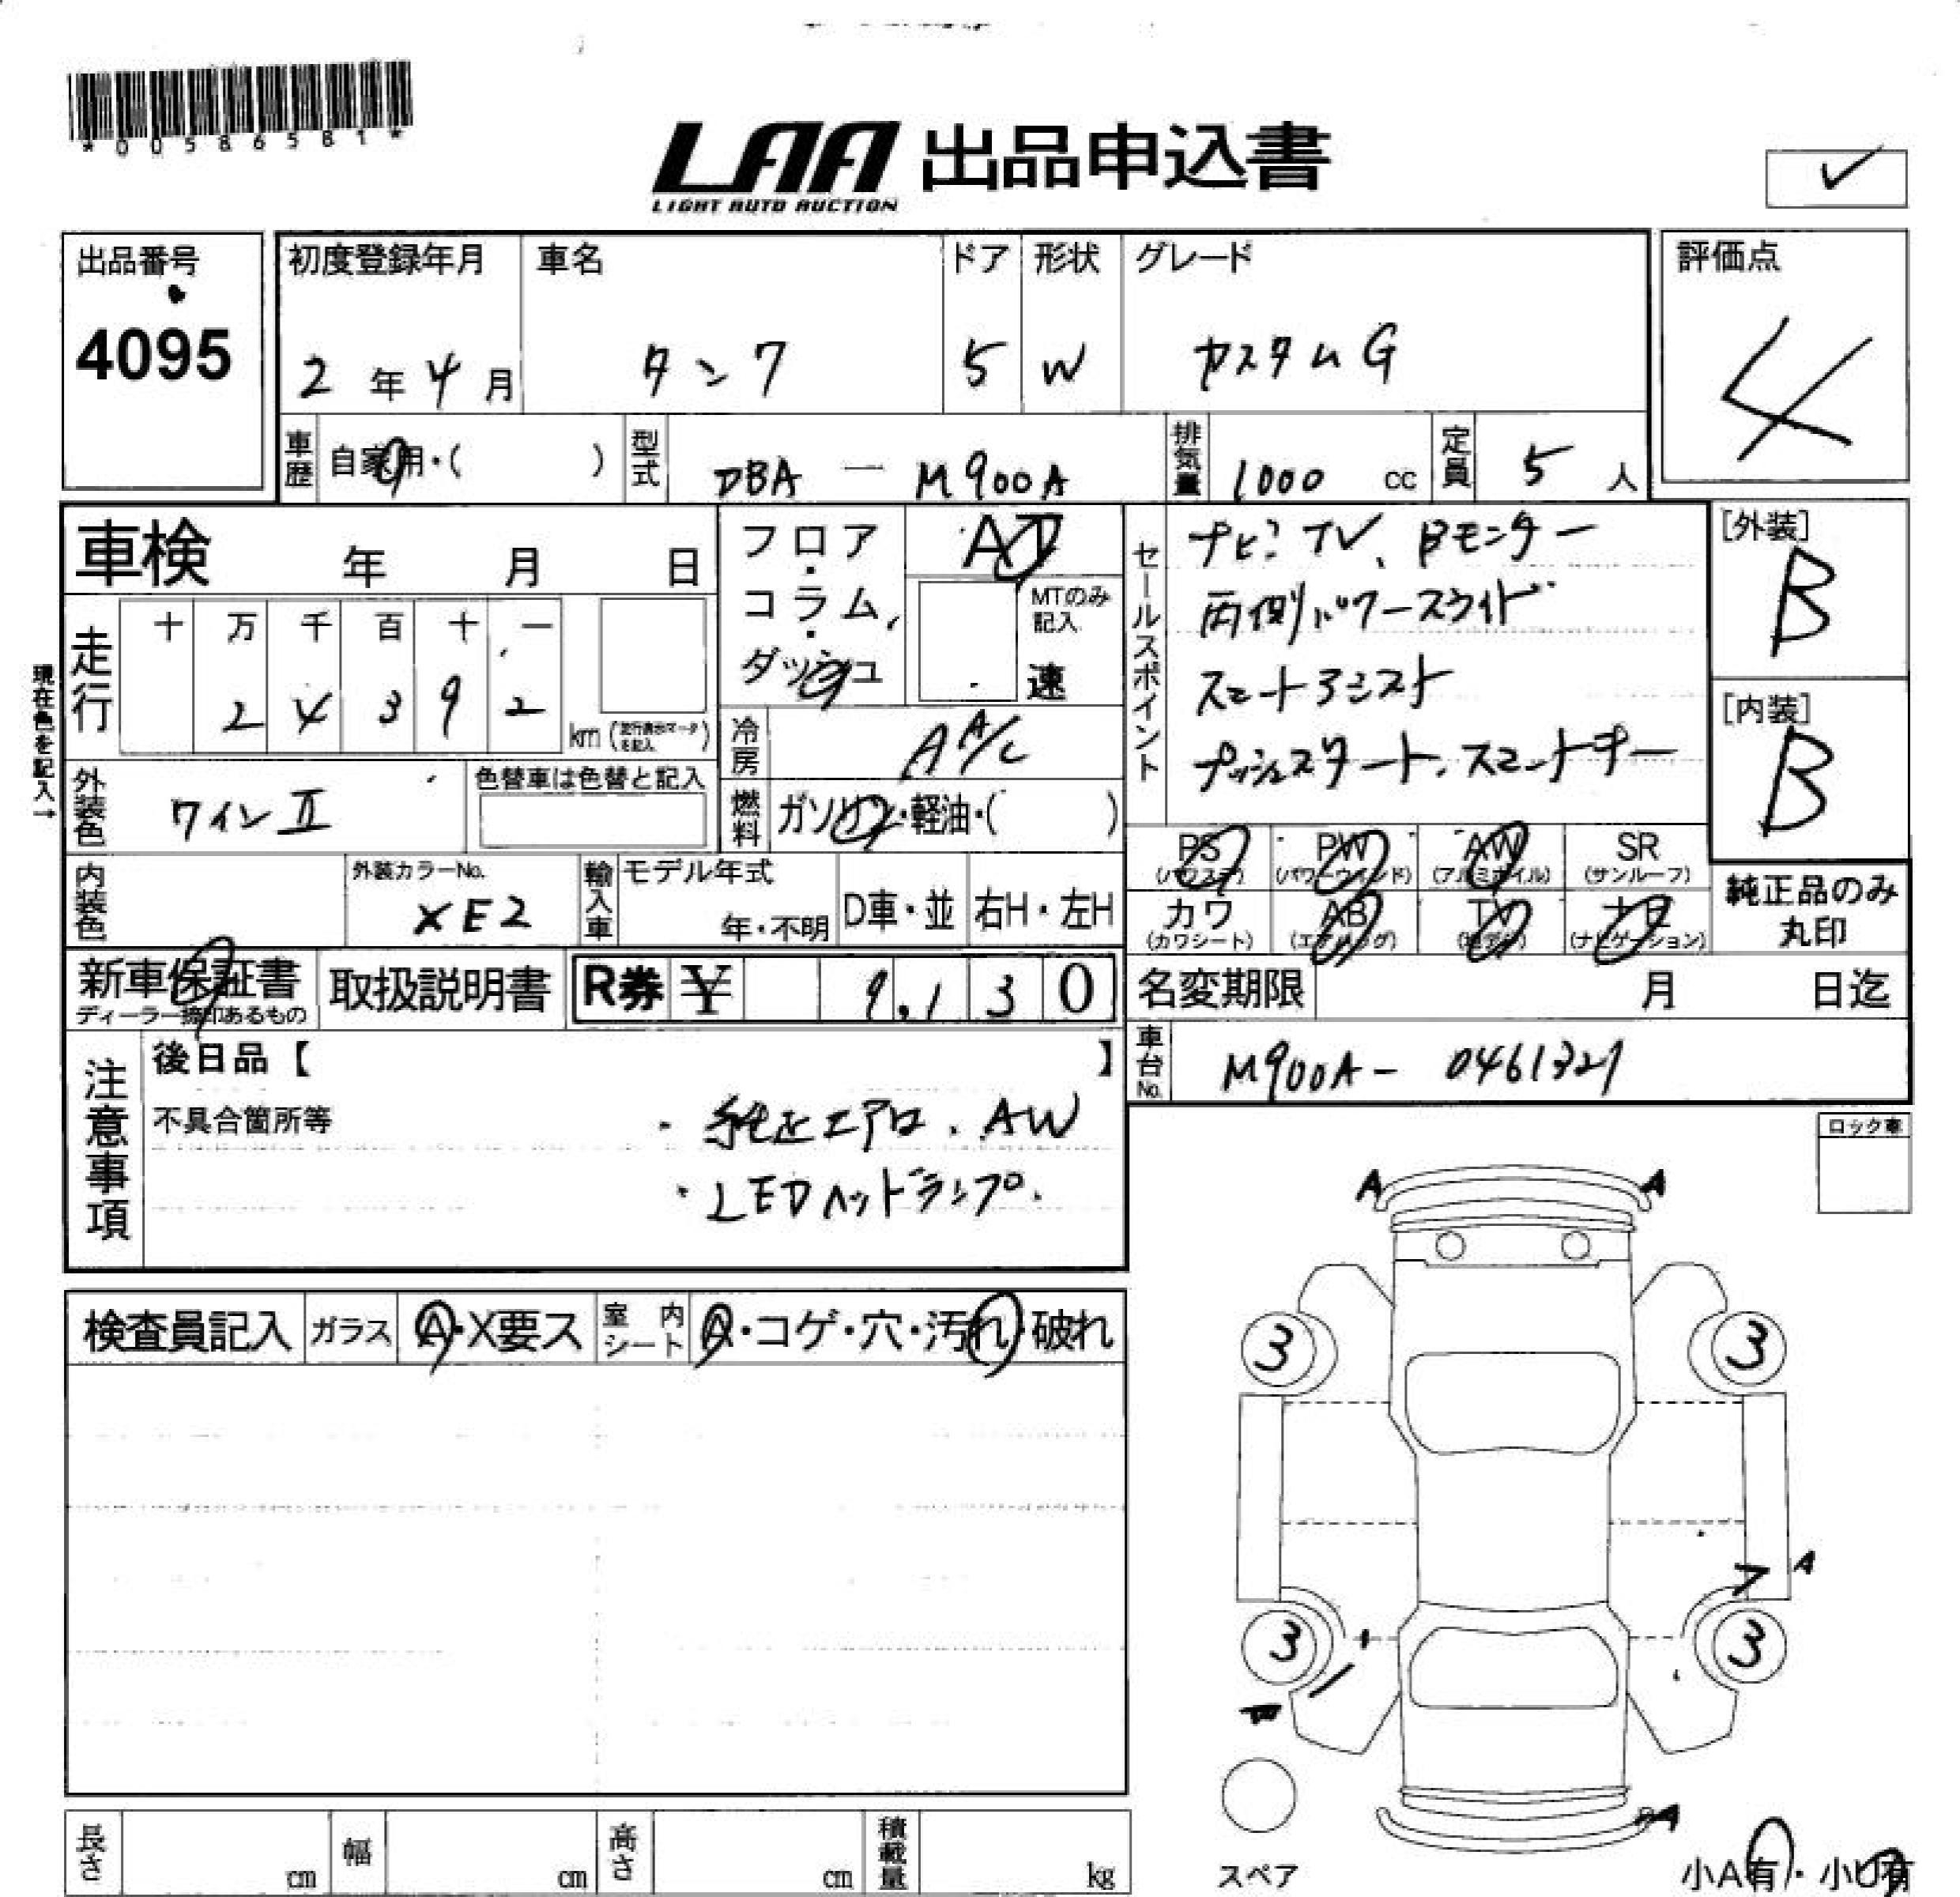 *00586581*
LAA 出品申込書
LIGHT AUTO AUCTION
出品番号
4095
初度登録年月
2年4月
車名
タンク
ドア
5
形状
W
グレード
カスタムG
評価点
4
車歴 自家用・( )
型式 DBA — M900A
排気量 1000 cc
定員 5 人
車検 年 月 日
フロア・コラム・ダッシュ
AT
MTのみ記入
速
セールスポイント
ナビ、TV、Bモニター
両側パワースライド
スマートアシスト
プッシュスタート、スマートキー
[外装]
B
[内装]
B
現在色を記入→
走行
十 万 千 百 十 一
2 4 3 9 2
km (走行表示マークを記入)
冷房 AA/C
外装色 ワインⅡ
色替車は色替と記入
燃料 ガソリン・軽油・( )
内装色
外装カラーNo.
XE2
輸入車
モデル年式
年・不明
D車・並
右H・左H
PS (パワステ)
PW (パワーウインド)
AW (アルミホイル)
SR (サンルーフ)
カワ (カワシート)
AB (エアバッグ)
TV
ナビ (ナビゲーション)
純正品のみ
丸印
新車保証書
ディーラー捺印あるもの
取扱説明書
R券 ¥ 9,130
名変期限 月 日迄
車台No. M900A- 0461327
注意事項
後日品【 】
不具合箇所等
・純正エアロ、AW
・LEDヘッドランプ.
ロック車
A A
3 3
A
3 3
スペア
小A有・小U有
検査員記入
ガラス A・X要ス
室内シート A・コゲ・穴・汚れ・破れ
長さ cm
幅 cm
高さ cm
積載量 kg